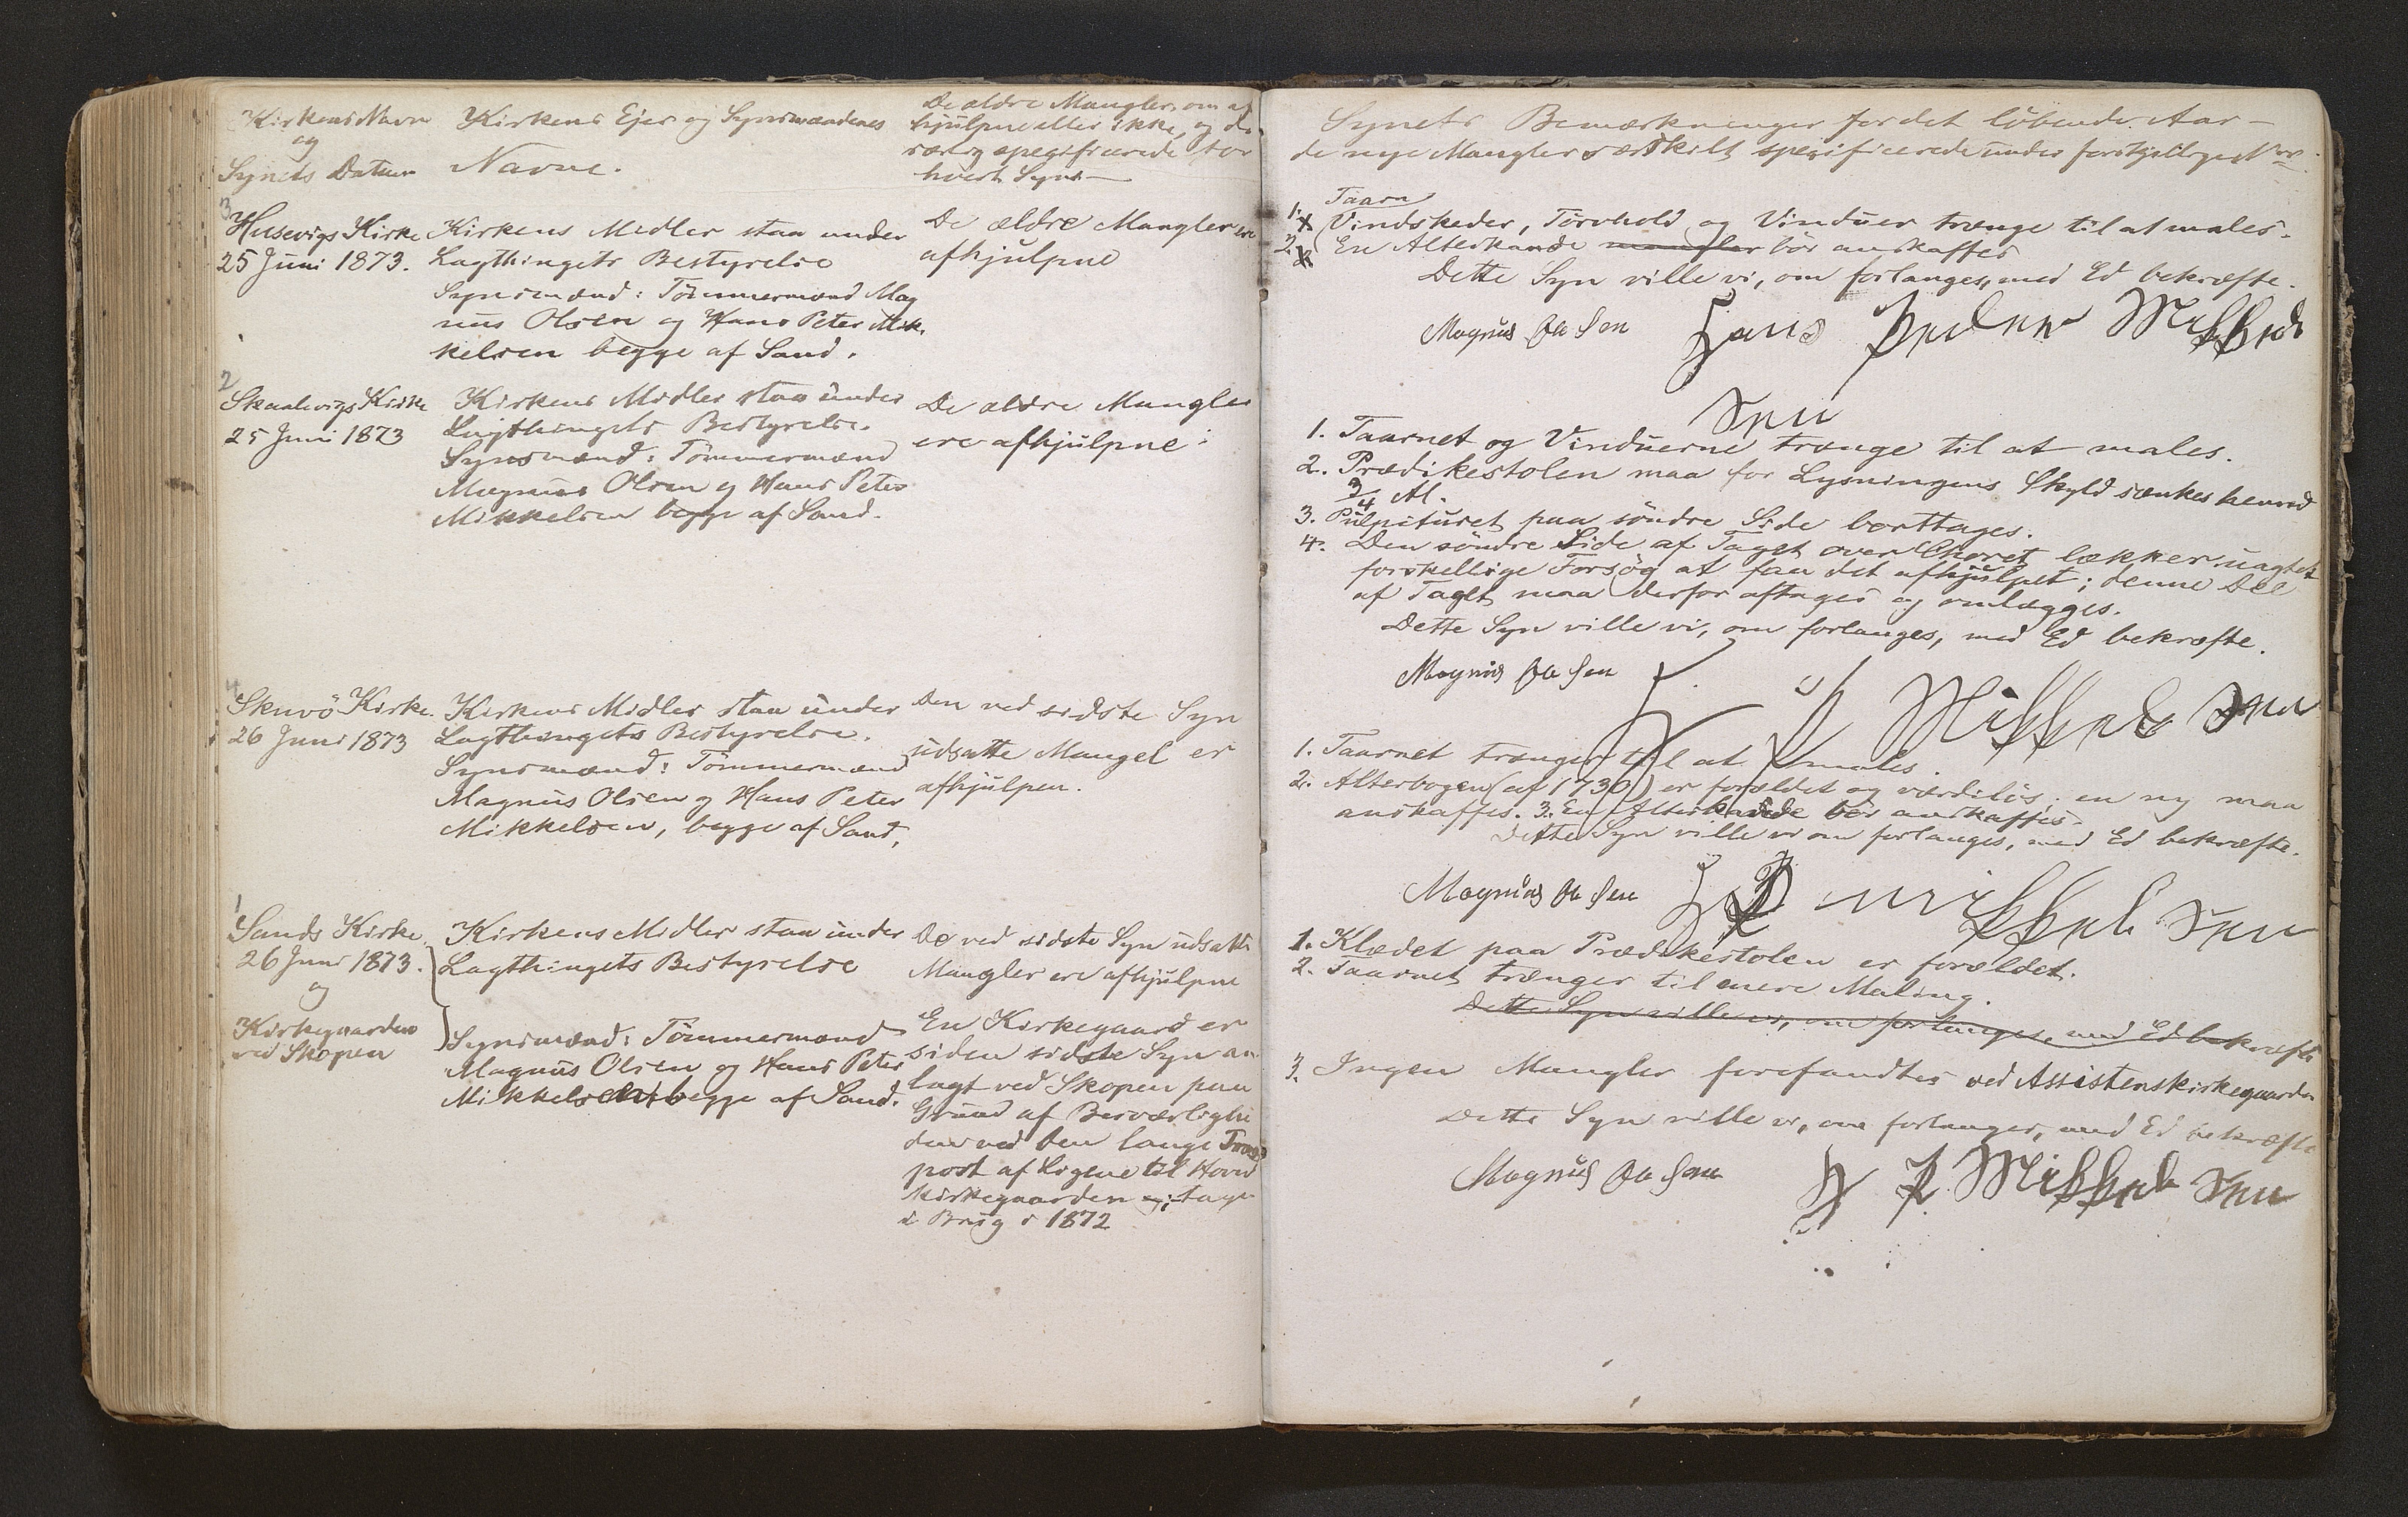 Kirkens Navn
og
Synets Datum
Kirkens Ejer og Synsmændenes
Navne.
De ældre Mangler, om af
hjulpne eller ikke, og de
særlig spezificerede for
hvert Syn
3
Husevigs Kirke
25 Juni 1873.
Kirkens Midler staa under
Lagthingets Bestyrelse
Synsmænd: Tömmermænd Mag
nus Olsen og Hans Peter Mik
kelsen begge af Sand.
De ældre Mangler ere
afhjulpne
2
Skaalevigs Kirke
25 Juni 1873
Kirkens Midler staa under
Lagthingets Bestyrelse.
Synsmænd: Tömmermænd
Magnus Olsen og Hans Peter
Mikkelsen begge af Sand.
De ældre Mangler
ere afhjulpne
4
Skuö Kirke.
26 Juni 1873
Kirkens Midler staa under
Lagthingets Bestyrelse.
Synsmænd: Tömmermænd
Magnus Olsen og Hans Peter
Mikkelsen, begge af Sand,
Den ved sidste Syn
udsatte Mangel er
afhjulpen.
1
Sands Kirke
26 Juni 1873.
og
Kirkegaarden
ved Skopen
Kirkens Midler staa under
Lagthingets Bestyrelse
Synsmænd: Tömmermænd
Magnus Olsen og Hans Peter
Mikkelsen begge af Sand.
De ved sidste Syn udsatte
Mangler ere afhjulpne
En Kirkegaard er
siden sidste Syn an
lagt ved Skopen paa
Grund af Besværlighe
den ved den lange Trans
port af Ligene til Hoved
kirkegaarden og tagen
i Brug i 1872
Synets Bemærkninger for det löbende Aar –
de nye Mangler særskilt spezificerede under forskjellige Nr.
Taarn
1. Vindskeder, Törvhold og Vinduer trænge til at males.
2. En Alterkande mangler bör anskaffes
Dette Syn ville vi, om forlanges, med Ed bekræfte.
Magnus Olsen Hans Peder Mikkels
Sen
1. Taarnet og Vinduerne trænge til at males.
2. Prædikestolen maa for Lysningens Skyld sænkes henved
3/4 Al.
3. Pulpituret paa söndre Side borttages.
4. Den söndre Side af Taget over Choret lækker uagtet
forskellige Forsög at faa det afhjulpet; denne Del
af Taget maa derfor aftages og omlægges.
Dette Syn ville vi, om forlanges, med Ed bekræfte.
Magnus Olsen H P Mikkelsen
1. Taarnet trænger til at males.
2. Alterbogen (af 1730) er forældet og værdilös; en ny maa
anskaffes. 3. En Alterkande bör anskaffes.
Dette Syn ville vi om forlanges, med Ed bekræfte.
Magnus Olsen H P Mikkelsen
1. Klædet paa Prædikestolen er forældet.
2. Taarnet trænger til mere Maling.
Dette Syn ville vi, om forlanges, med Ed bekræfte
3. Ingen Mangler forefandtes ved Assistenskirkegaarden
Dette Syn ville vi, om forlanges, med Ed bekræfte
Magnus Olsen H P Mikkelsen